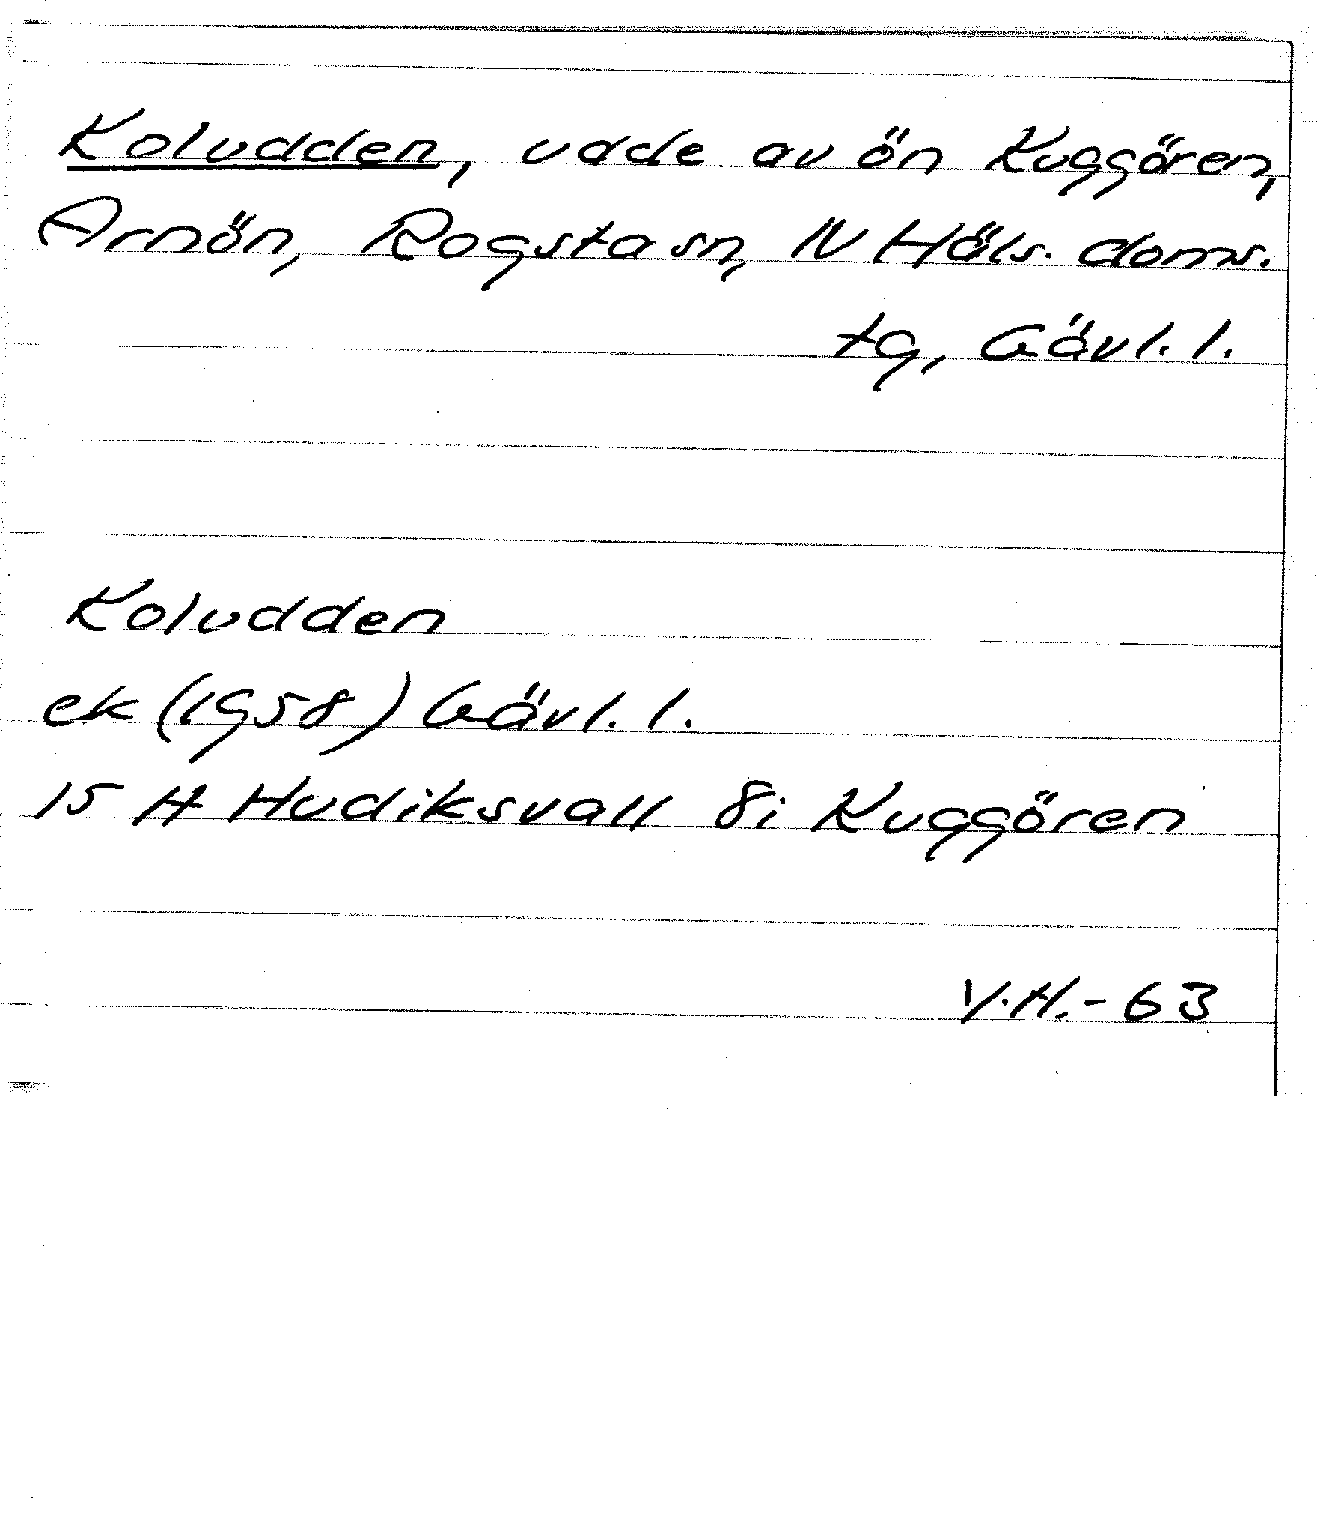 Koludden, udde av ön Kuggören,
Arnön, Rogsta sn, N Häls. doms.
tg, Gävl. l.
Koludden
ek (1958) Gävl. l.
15 H Hudiksvall 8i Kuggören
V.H.-63